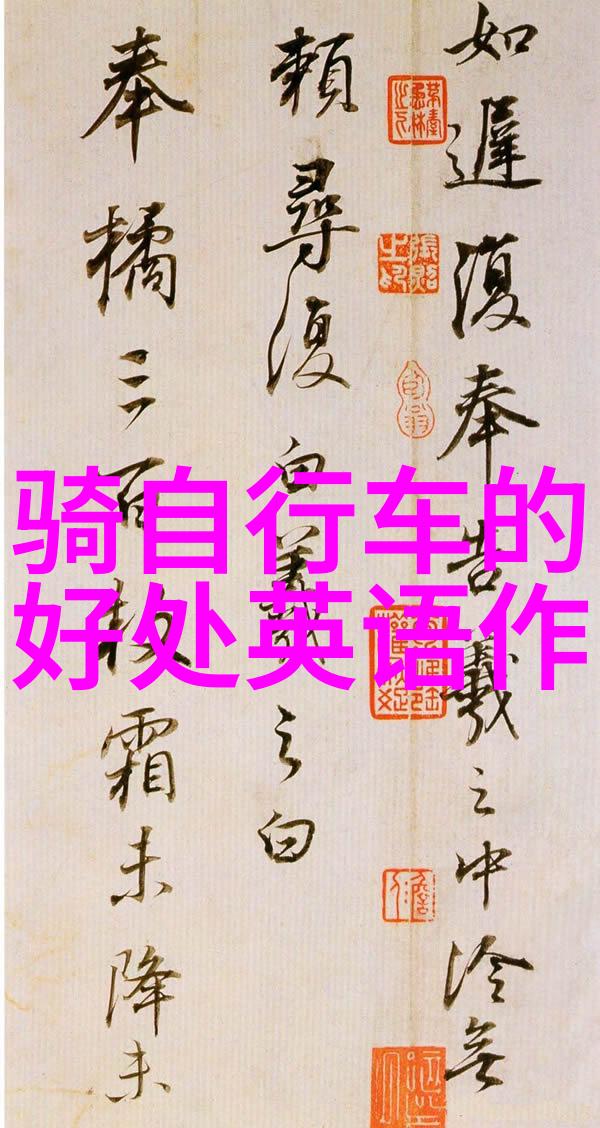 如遲復奉告羲之中冷無
賴尋復白羲之白
奉橘三百枚霜未降未
骑自行车的
好处英语作